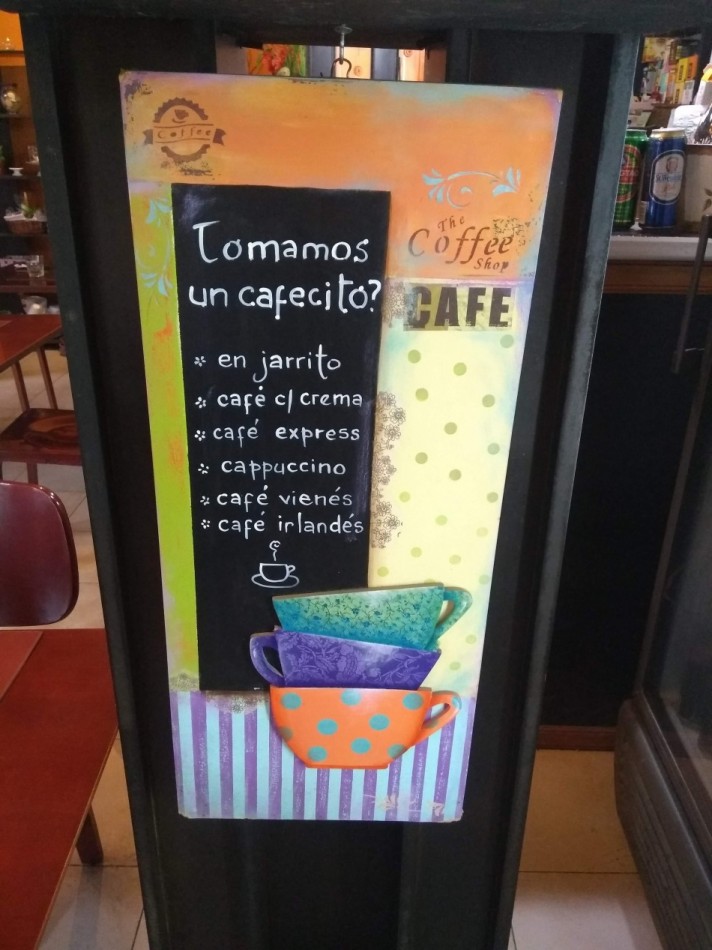 Coffee
The
Coffee
Shop
CAFE
Tomamos
un cafecito?
* en jarrito
* café c/ crema
* café express
* cappuccino
* café vienés
* café irlandés